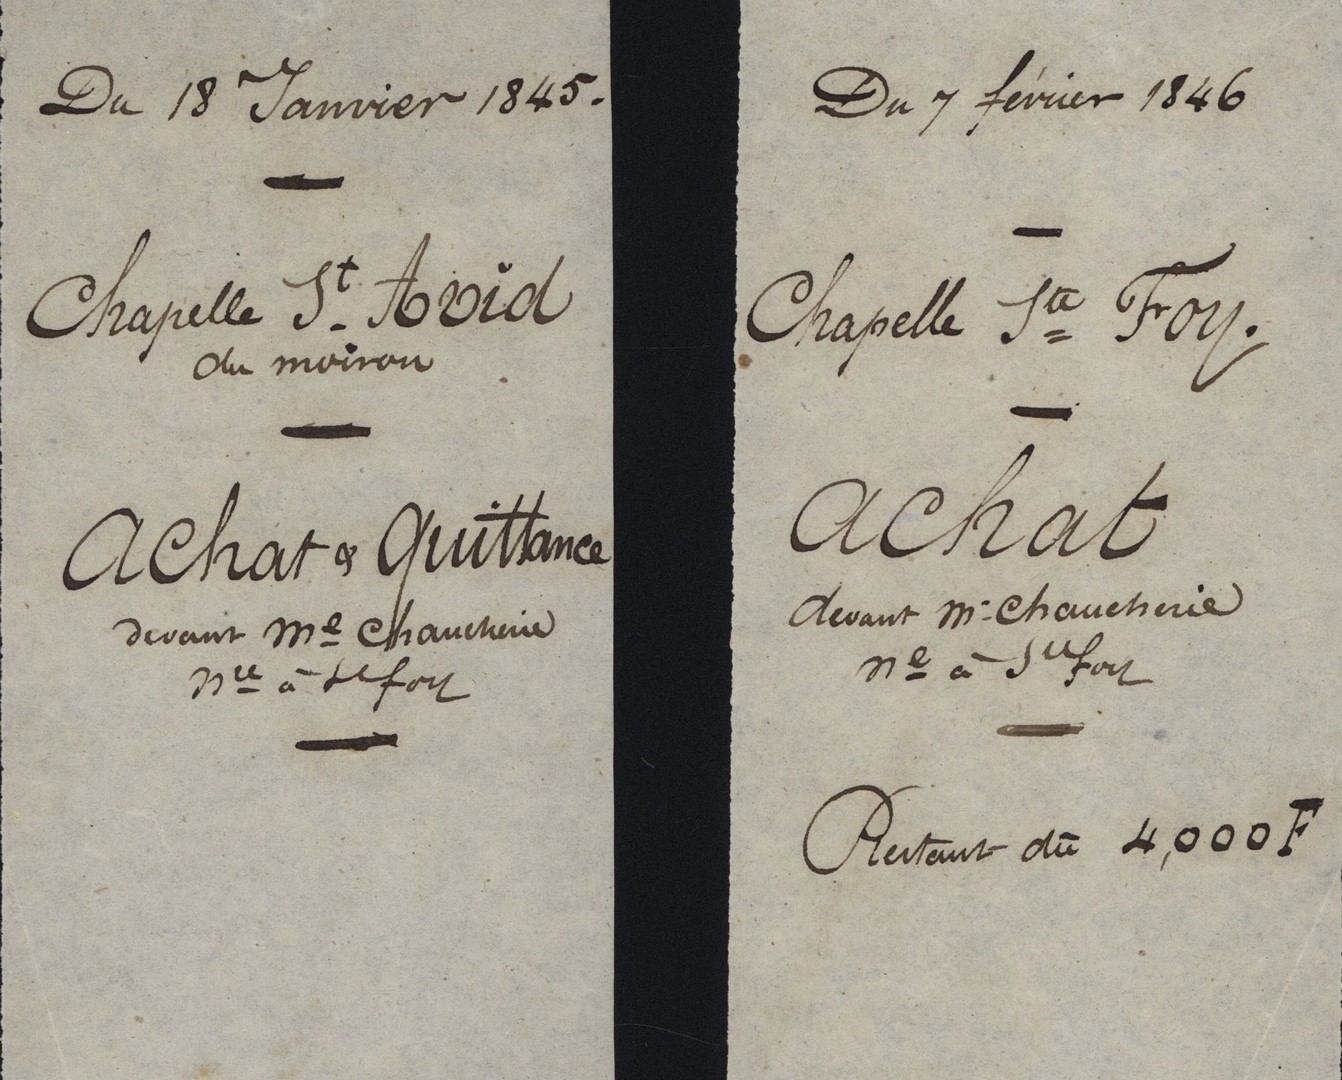 Du 18 Janvier 1845.
Chapelle St Avid
du moiron
Achat & Quittance
devant Me Chaucherie
nre à Ste foy
Du 7 février 1846
Chapelle Ste Foy.
Achat
devant Me Chaucherie
ne à Ste foy
Restant dû 4,000 F